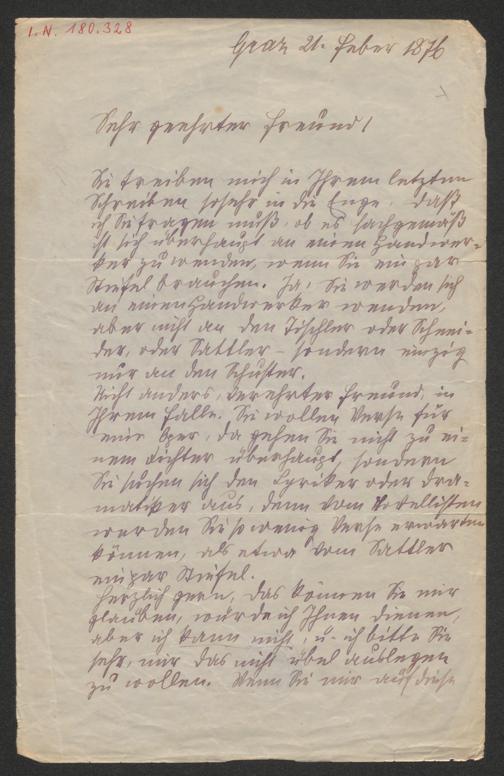 I. N. 180.328
Graz 21. Feber 1876
Sehr geehrter Freund!
Sie treiben mich in Ihrem letzten
Schreiben so sehr in die Enge, daß
ich Sie fragen muß, ob es sachgemäß
ist sich überhaupt an einen Handwer-
ker zu wenden, wenn Sie ein par
Stiefel brauchen. Ja, Sie werden sich
an einen Handwerker wenden,
aber nicht an den Tischler oder Schnei-
der, oder Sattler – sondern einzig
nur an den Schuster.
Nicht anders, verehrter Freund, in
Ihrem Falle. Sie wollen Verse für
eine Oper, da gehen Sie nicht zu ei-
nem Dichter überhaupt, sondern
Sie suchen sich den Lyriker oder Dra-
matiker aus, denn vom Novellisten
werden Sie so wenig Verse erwarten
können, als etwa vom Sattler
ein par Stiefel.
Herzlich gern, das können Sie mir
glauben, würde ich Ihnen dienen,
aber ich kann nicht, u. ich bitte Sie
sehr, mir das nicht übel auslegen
zu wollen. Wenn Sie mir auf diese